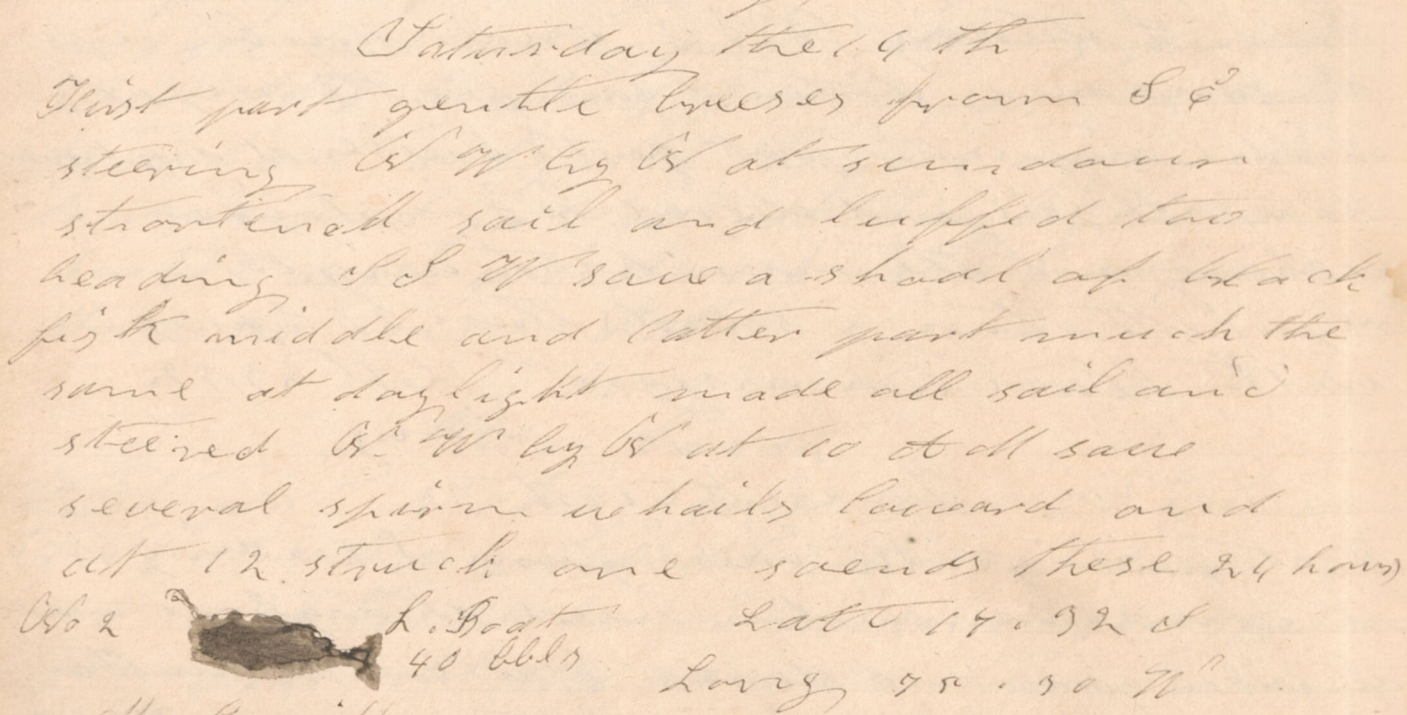 Saturday the 14th
First part gentle breeses from S E
steering N W by N at sundown
strortened sail and luffed two
heading S S W saw a shoal of black
fish middle and latter part much the
same at daylight made all sail and
steered N. W by N at 10 A M saw
several spirm whails loward and
at 12 struck one soends these 24 hours
No 2 L. Boat Latt 17.32 S
40 bbls
Long 75.30 W